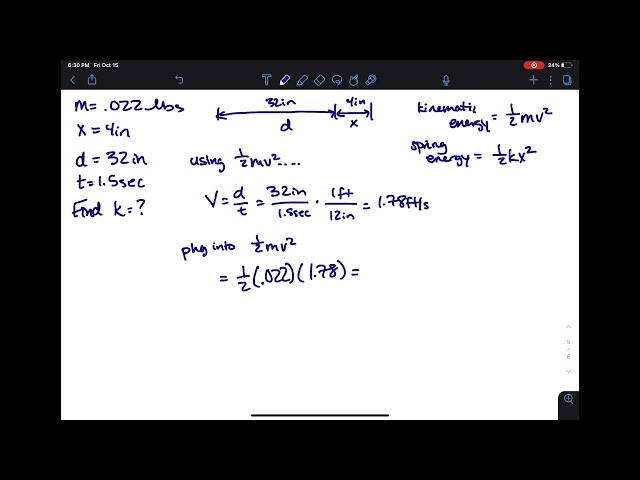 6:30 PM Fri Oct 15
24%
T
m = .022 lbs
x = 4in
d = 32in
t = 1.5sec
Find k = ?
32in 4in
d x
kinematic energy = 1/2 mv²
spring energy = 1/2 kx²
using 1/2 mv² ....
V = d/t = 32in/1.5sec · 1ft/12in = 1.78ft/s
plug into 1/2 mv²
= 1/2 (.022)(1.78) =
5
/
6